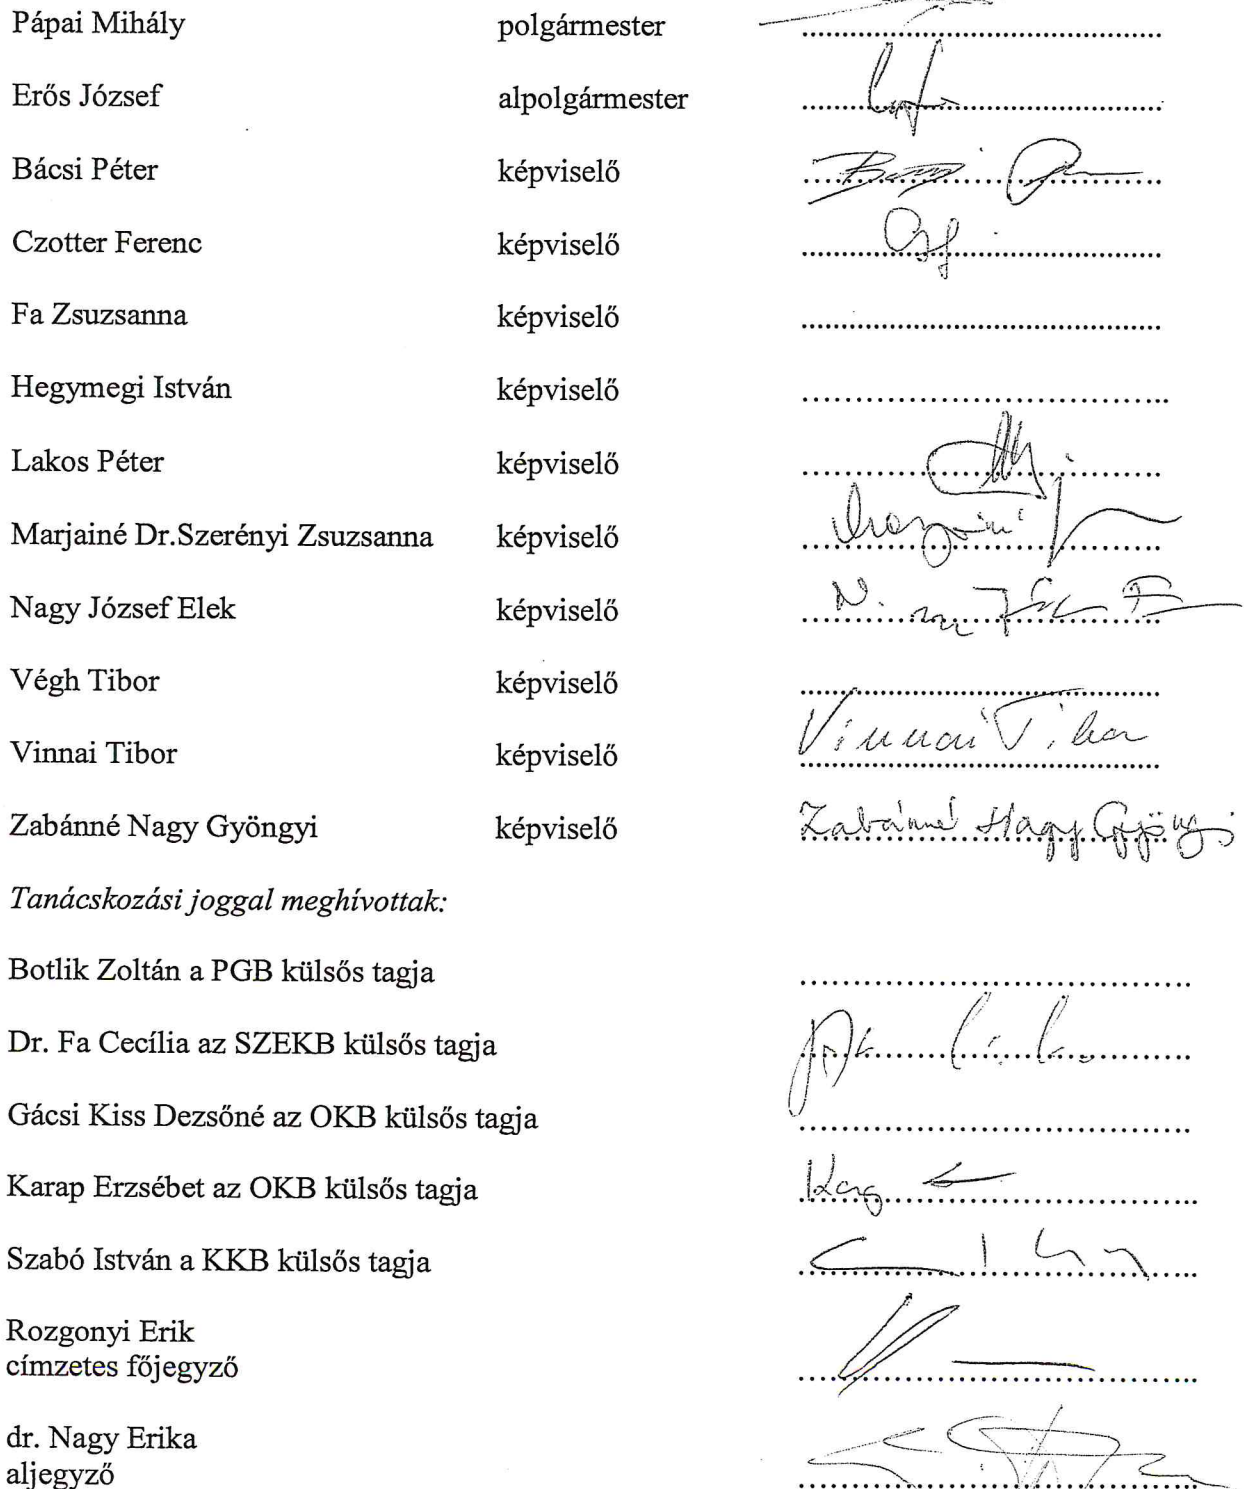 Pápai Mihály polgármester ........................................
Erős József alpolgármester ........................................
Bácsi Péter képviselő ........................................
Czotter Ferenc képviselő ........................................
Fa Zsuzsanna képviselő ........................................
Hegymegi István képviselő ........................................
Lakos Péter képviselő ........................................
Marjainé Dr.Szerényi Zsuzsanna képviselő ........................................
Nagy József Elek képviselő ........................................
Végh Tibor képviselő ........................................
Vinnai Tibor képviselő Vinnai Tibor
Zabánné Nagy Gyöngyi képviselő Zabánné Nagy Gyöngyi
Tanácskozási joggal meghívottak:
Botlik Zoltán a PGB külsős tagja ........................................
Dr. Fa Cecília az SZEKB külsős tagja ........................................
Gácsi Kiss Dezsőné az OKB külsős tagja ........................................
Karap Erzsébet az OKB külsős tagja ........................................
Szabó István a KKB külsős tagja ........................................
Rozgonyi Erik
címzetes főjegyző ........................................
dr. Nagy Erika
aljegyző ........................................